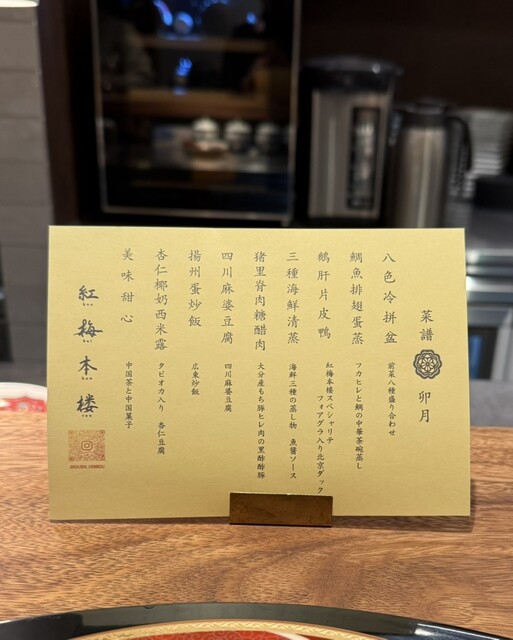 菜譜 卯月
八色冷拼盆 前菜八種盛り合わせ
鯛魚排翅蛋蒸 フカヒレと鯛の中華茶碗蒸し
鵝肝片皮鴨 紅梅本楼スペシャリテ
フォアグラ入り北京ダック
三種海鮮清蒸 海鮮三種の蒸し物 魚醤ソース
猪里脊肉糖醋肉 大分産もち豚ヒレ肉の黒酢酢豚
四川麻婆豆腐 四川麻婆豆腐
揚州蛋炒飯 広東炒飯
杏仁椰奶西米露 タピオカ入り 杏仁豆腐
美味甜心 中国茶と中国菓子
紅梅本楼